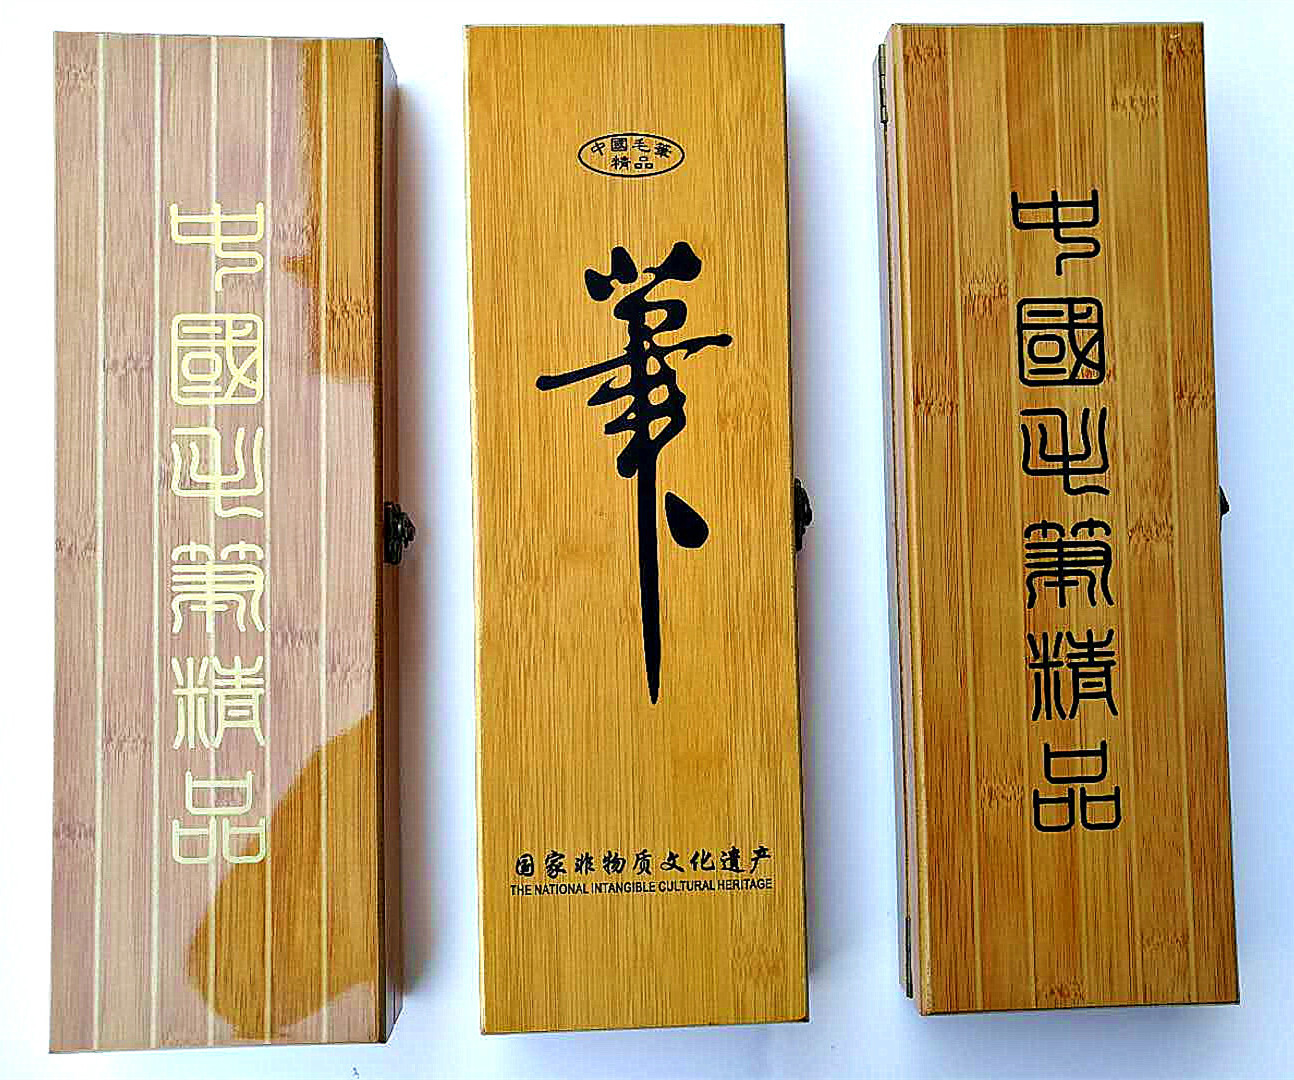 中國毛筆精品
中國毛筆
精品
筆
国家非物质文化遗产
THE NATIONAL INTANGIBLE CULTURAL HERITAGE
中國毛筆精品